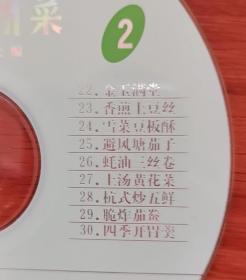 菜
2
22. 金玉满堂
23. 香煎土豆丝
24. 雪菜豆板酥
25. 避风塘茄子
26. 蚝油三丝卷
27. 上汤黄花菜
28. 杭式炒五鲜
29. 脆炸茄盒
30. 四季开胃羹